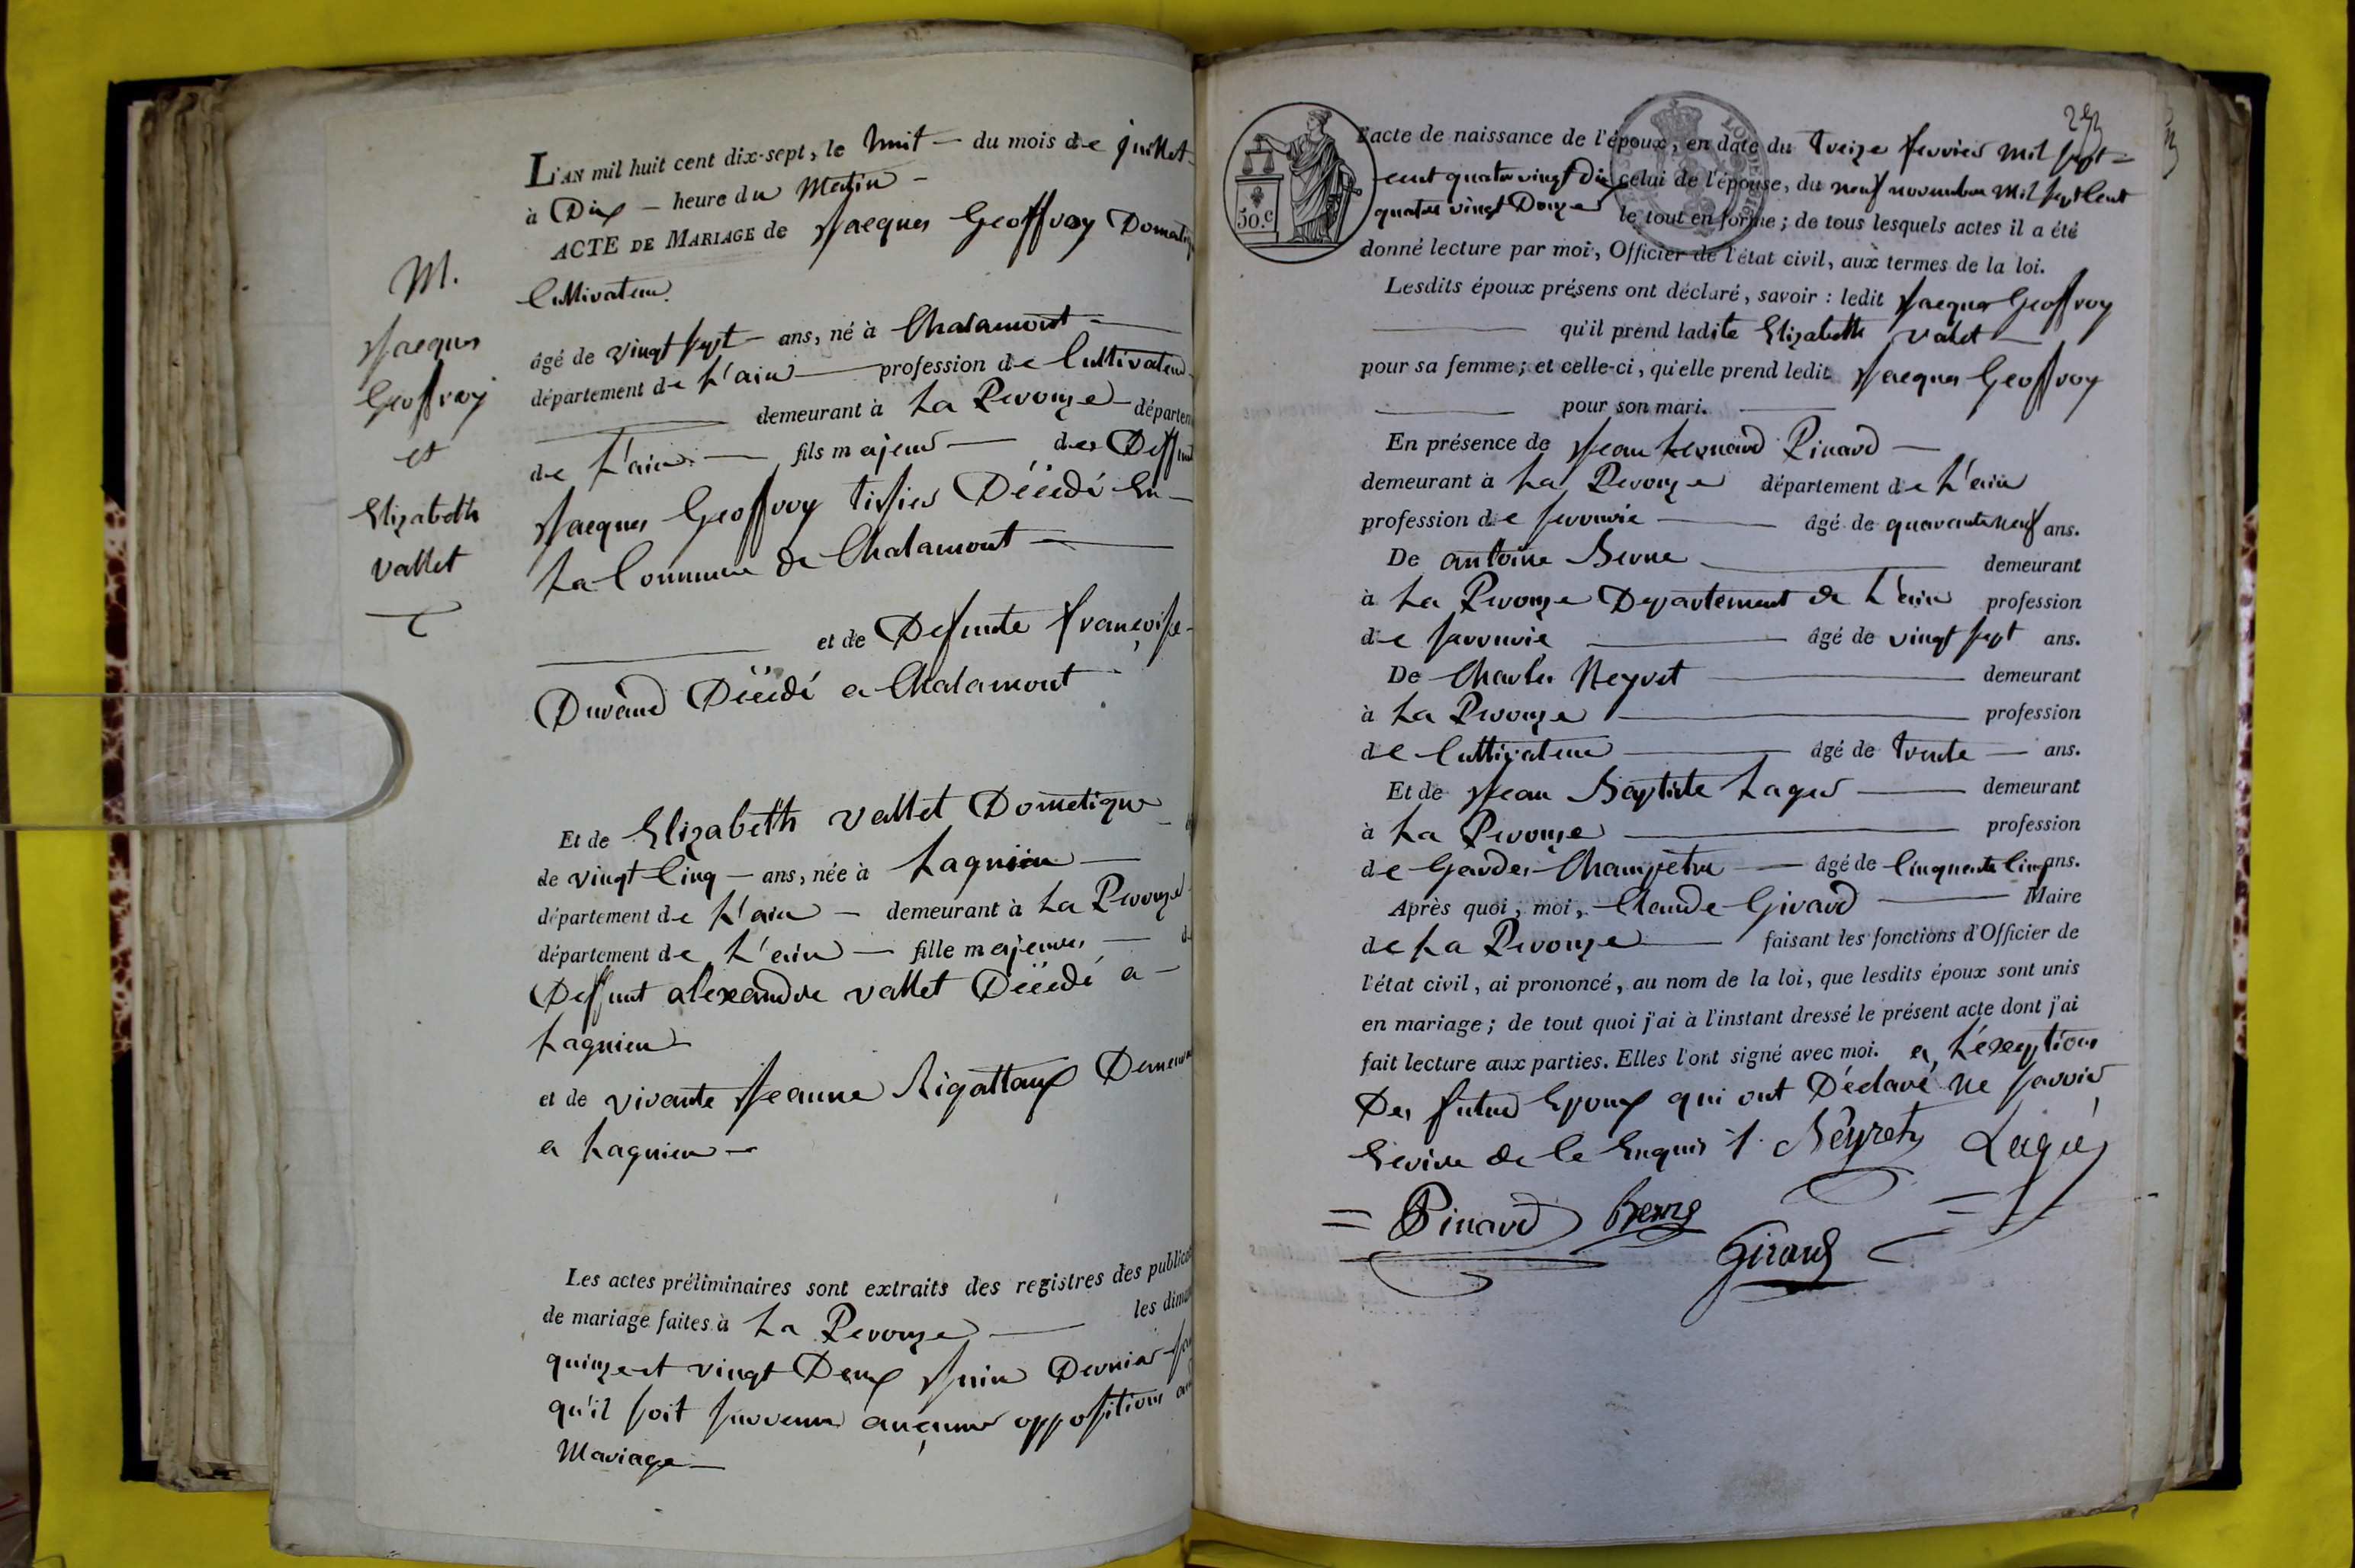 M.
Jacques
Geoffray
et
Elizabeth
Vallet
L'AN mil huit cent dix-sept, le huit du mois de juillet
à Dix heure du Matin
ACTE DE MARIAGE de Jacques Geoffray
Cultivateur
âgé de vingt sept ans, né à Chalamont
département de L'ain profession de Cultivateur
demeurant à La Pérouze
de L'ain fils majeur des
Jacques Geoffray tissier Décédé En
La Commune de Chalamont
et de Defunte françoise
Durand Décédé a Chalamont
Et de Elizabeth vallet Dometique
de vingt Cinq ans, née à Lagnieu
département de L'ain demeurant à La Pérouze
département de L'ain fille majeure
Deffunt alexandre vallet Décédé a
Lagnieu
et de vivante Jeanne Rigattaux
a Lagnieu
Les actes préliminaires sont extraits des registres des
de mariage faites à La Pérouze les
quinze et vingt Deux Juin Dernier
qu'il soit survenu aucune opposition
Mariage
50.C
L'acte de naissance de l'époux, en date du treize fevrier mil sept
cent quatre vingt Dix celui de l'épouse, du neuf novembre mil sept Cent
quatre vingt Douze le tout en forme; de tous lesquels actes il a été
donné lecture par moi, Officier de l'état civil, aux termes de la loi.
Lesdits époux présens ont déclaré, savoir : ledit Jacques Geoffray
qu'il prend ladite Elizabeth Valet
pour sa femme; et celle-ci, qu'elle prend ledit Jacques Geoffray
pour son mari.
En présence de Jean Leonard Pinard
demeurant à La Pérouze département de L'ain
profession de âgé de quarante neuf ans.
De antoine Berne demeurant
à La Pérouze Departement de L'ain profession
de âgé de vingt sept ans.
De Charles Neyret demeurant
à La Pérouze profession
de Cultivateur âgé de trente ans.
Et de Jean Baptiste Lager demeurant
à La Pérouze profession
de Garde Champêtre âgé de Cinquante Cinq ans.
Après quoi, moi, Claude Girard Maire
de La Pérouze faisant les fonctions d'Officier de
l'état civil, ai prononcé, au nom de la loi, que lesdits époux sont unis
en mariage; de tout quoi j'ai à l'instant dressé le présent acte dont j'ai
fait lecture aux parties. Elles l'ont signé avec moi. a L'exeption
Des futur Epoux qui ont Déclaré ne savoir
Ecrire de ce Enquis Neyret
Pinard Berne
Girard